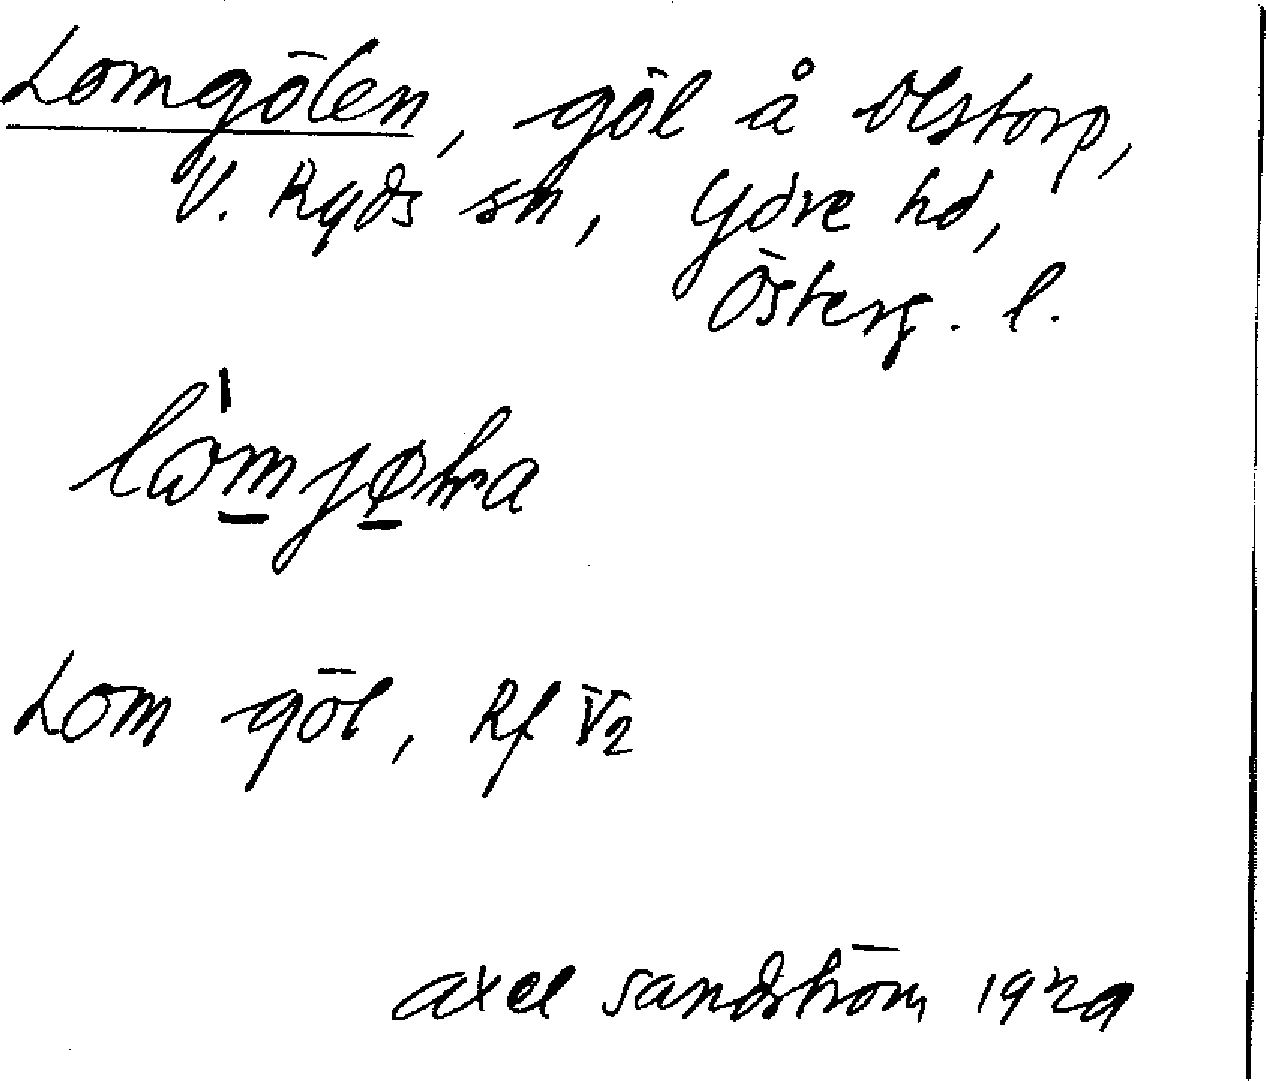 Lomgölen, göl å Olstorp,
V. Ryds sn, Ydre hd,
Österg. l.
Lom göl, Rf V2
Axel Sandström 1929